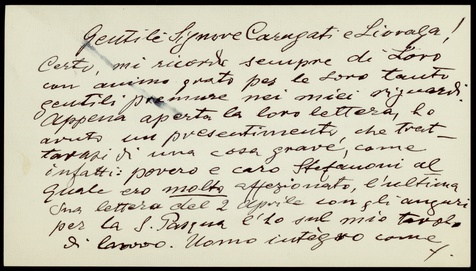 Gentili Signore Caragati e Liovala!
Certo, mi ricordo sempre di Loro
con animo grato per le Loro tanto
gentili premure nei miei riguardi.
Appena aperta la loro lettera, ho
avuto un presentimento, che trat-
tavasi di una cosa grave, come
infatti: povero e caro Stefanoni al
quale ero molto affezionato, l'ultima
Sua lettera del 2 Aprile con gli auguri
per la S. Pasqua l'ho sul mio tavolo
di lavoro. Uomo intègro come